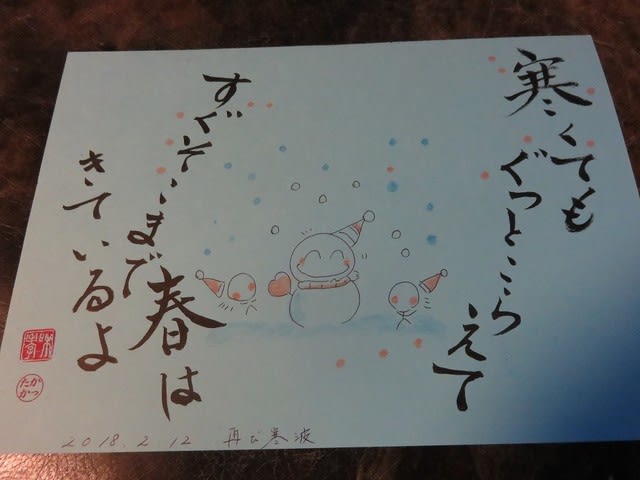 寒くても
ぐっとこらえて
すぐそこまで
春は
きているよ
2018.2.12 再び寒波